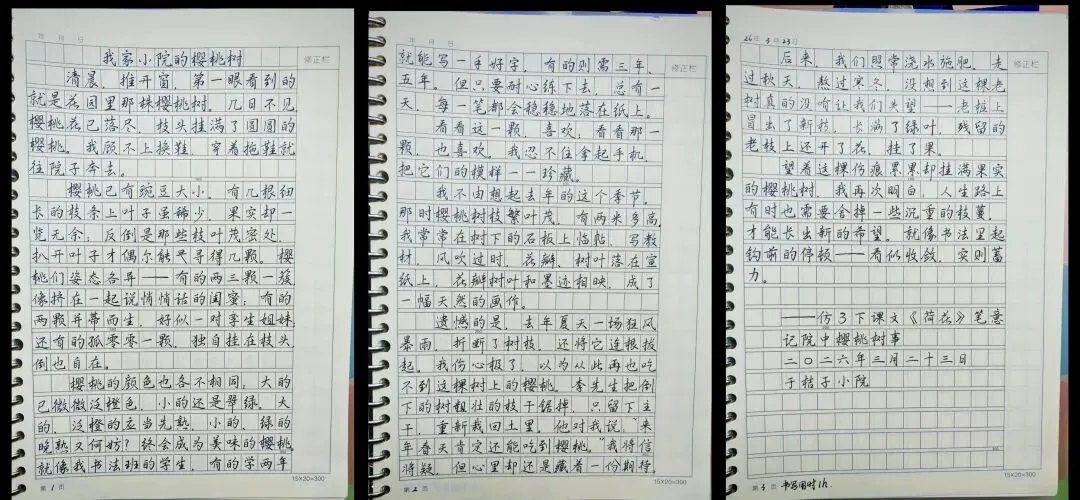 年 月 日
修正栏
我家小院的樱桃树
清晨，推开窗，第一眼看到的
就是花园里那株樱桃树。几日不见，
樱桃花已落尽，枝头挂满了圆圆的
樱桃。我顾不上换鞋，穿着拖鞋就
往院子奔去。
樱桃已有豌豆大小。有几根细
长的枝条上叶子虽稀少，果实却一
览无余；反倒是那些枝叶茂密处，
扒开叶子才偶尔能寻得几颗。樱
桃们姿态各异——有的两三颗一簇，
像挤在一起说悄悄话的闺蜜；有的
两颗并蒂而生，好似一对孪生姐妹，
还有的孤零零一颗，独自挂在枝头，
倒也自在。
樱桃的颜色也各不相同：大的
已微微泛橙色，小的还是翠绿。大
的、泛橙的应当先熟，小的、绿的
晚熟又何妨？终会成为美味的樱桃。
就像我书法班的学生，有的学两年
15×20=300
第 1 页
年 月 日
修正栏
就能写一手好字，有的则需三年、
五年。但只要耐心练下去，总有一
天，每一笔都会稳稳地落在纸上。
看看这一颗，喜欢；看看那一
颗，也喜欢。我忍不住拿起手机，
把它们的模样一一珍藏。
我不由想起去年的这个季节。
那时樱桃树枝繁叶茂，有两米多高，
我常常在树下的石板上临帖、写教
材，风吹过时，花瓣、树叶落在宣
纸上，花瓣树叶和墨迹相映，成了
一幅天然的画作。
遗憾的是，去年夏天一场狂风
暴雨，折断了树枝，还将它连根拔
起。我伤心极了，以为从此再也吃
不到这棵树上的樱桃。李先生把倒
下的树粗壮的枝干锯掉，只留下主
干，重新栽回土里。他对我说："来
年春天肯定还能吃到樱桃。"我将信
将疑，但心里却还是藏着一份期待。
15×20=300
第 2 页
26 年 3 月 23 日
修正栏
后来，我们照常浇水施肥，走
过秋天，熬过寒冬，没想到这棵老
树真的没有让我们失望——老桩上
冒出了新枝，长满了绿叶，残留的
老枝上还开了花，挂了果。
望着这棵伤痕累累却挂满果实
的樱桃树，我再次明白，人生路上
有时也需要舍掉一些沉重的枝蔓，
才能长出新的希望。就像书法里起
钩前的停顿——看似收敛，实则蓄
力。
——仿3下课文《荷花》笔意
记院中樱桃树事
二〇二六年三月二十三日
于桔子小院
15×20=300
第 3 页 书写用时1h.